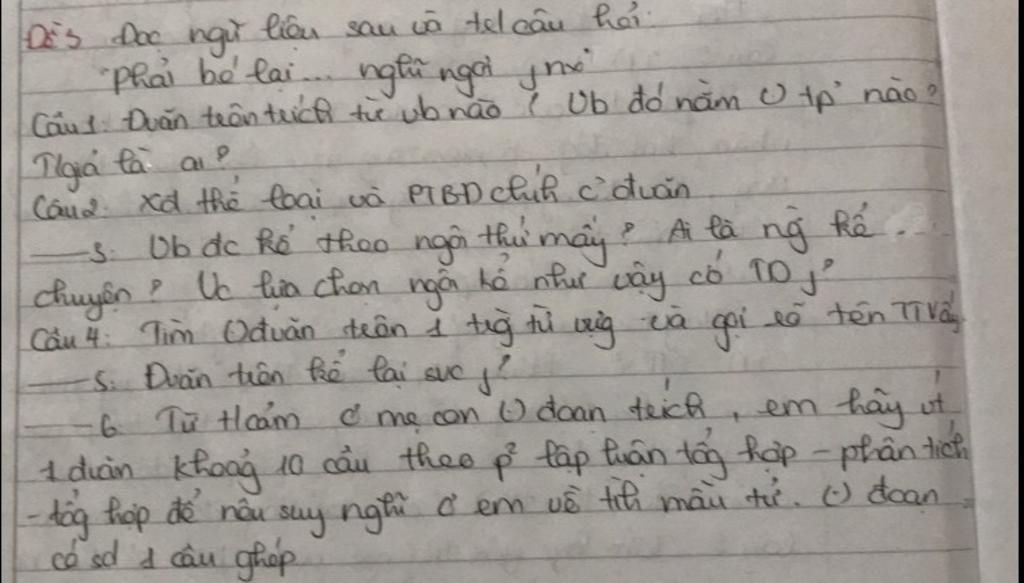 Đề 3 Đọc ngữ liệu sau và tel câu hỏi:
"phải bé lại... nghĩ ngợi j nx"
Câu 1: Đvăn trên trích từ vb nào? Vb đó nằm (-) tp' nào?
T/giả là ai?
Câu 2. Xđ thể loại và PTBD chính c' đvăn
3. Vb đc kể theo ngôi thứ mấy? Ai là ng kể
chuyện? Vc lựa chọn ngôi kể như vậy có TD j?
Câu 4: Tìm (-) đvăn trên 1 trg từ vựng và gọi rõ tên TTVđấy
5. Đvăn trên kể lại sviệc j?
6 Từ t/cảm c' mẹ con (-) đoạn trích, em hãy vt
1 đvăn khoảng 10 câu theo p² lập luận tổg hợp - phân tích
- tổg hợp để nêu suy nghĩ c' em về tình mẫu tử. (-) đoạn
có sd 1 câu ghép